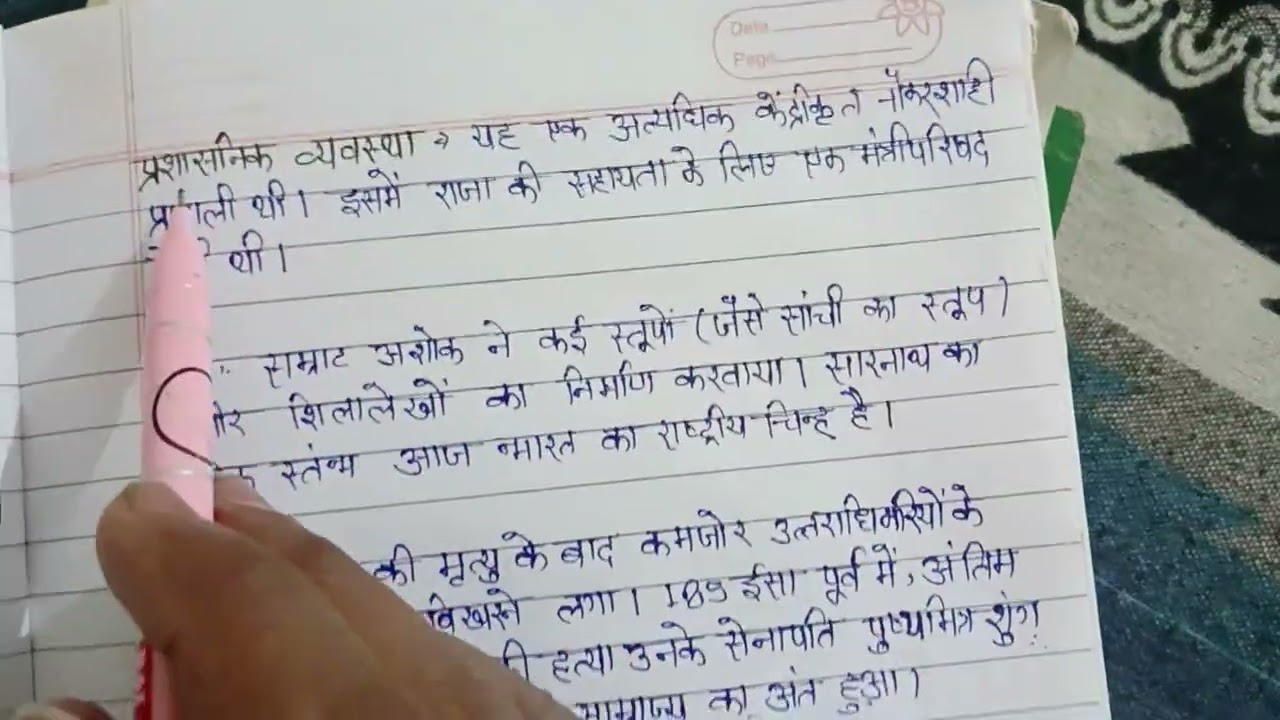 Date
Page
प्रशासनिक व्यवस्था → यह एक अत्यधिक केंद्रीकृत नौकरशाही
प्रणाली थी। इसमें राजा की सहायता के लिए एक मंत्रीपरिषद
थी।
सम्राट अशोक ने कई स्तूपों (जैसे सांची का स्तूप)
शिलालेखों का निर्माण करवाया। सारनाथ का
स्तंभ आज भारत का राष्ट्रीय चिन्ह है।
की मृत्यु के बाद कमजोर उत्तराधिकारियों के
बिखरने लगा। 185 ईसा पूर्व में, अंतिम
हत्या उनके सेनापति पुष्यमित्र शुंग
साम्राज्य का अंत हुआ।